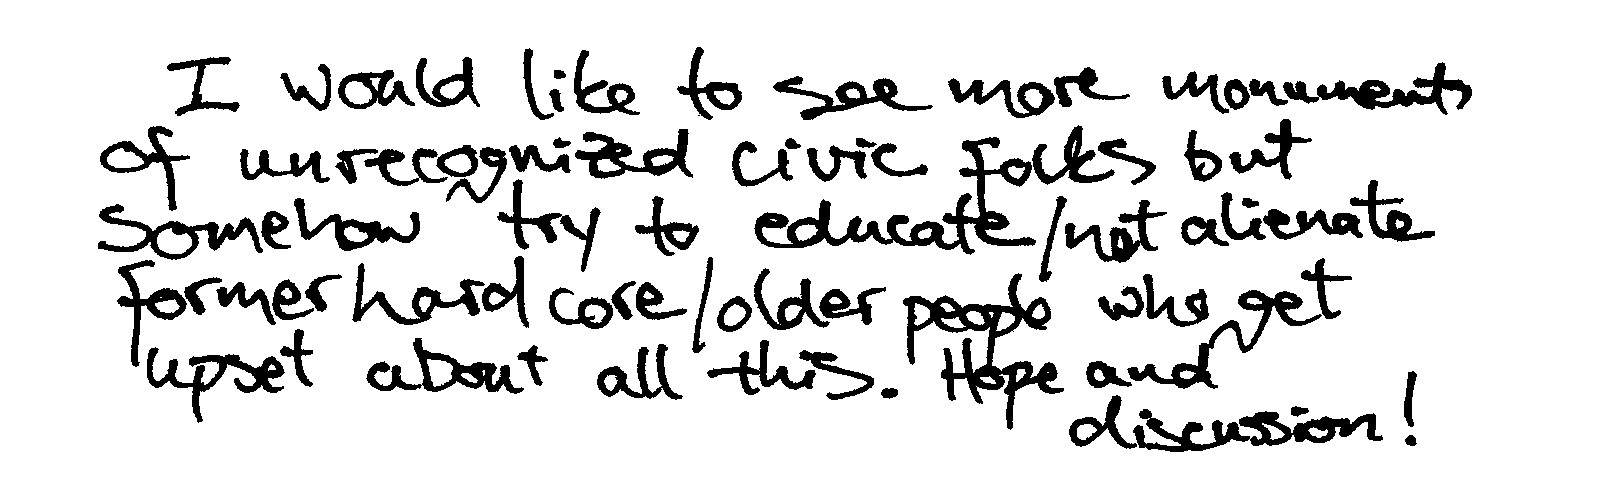 I would like to see more monuments
of unrecognized civic folks but
somehow try to educate/not alienate
former hard core/older people who get
upset about all this. Hope and
discussion!